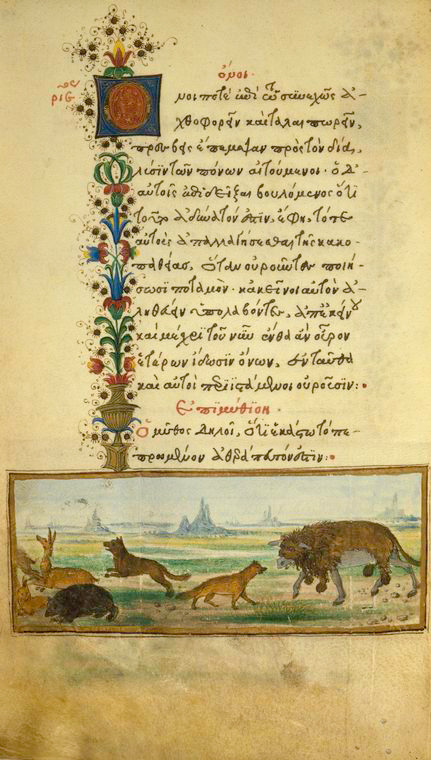 ὄνοι·
Ὄνοι ποτὲ ἐπὶ τῷ συνεχῶς ἀ-
χθοφορεῖν καὶ ταλαιπωρεῖν,
πρέσβεις ἔπεμψαν πρὸς τὸν δία,
λύσιν τῶν πόνων αἰτούμενοι. ὁ δὲ
αὐτοῖς ἐπιδεῖξαι βουλόμενος ὅτι
τοῦτο ἀδύνατόν ἐστιν, ἔφη τότε
αὐτοὺς ἀπαλλαγήσεσθαι τῆς κακο-
παθείας, ὅταν οὐροῦντες ποιή-
σωσι ποταμόν. κἀκεῖνοι αὐτὸν ἀ-
ληθεύειν ὑπολαβόντες, ἀπ' ἐκείνου
καὶ μέχρι τοῦ νῦν ἔνθα ἂν οὖρον
ἑτέρων ἴδωσιν ὄνων, ἐνταῦθα
καὶ αὐτοὶ περιιστάμενοι οὐροῦσιν:·
Ἐπιμύθιον·
Ὁ μῦθος δηλοῖ, ὅτι ἑκάστῳ τὸ πε-
πρωμένον ἀθεράπευτόν ἐστιν:·